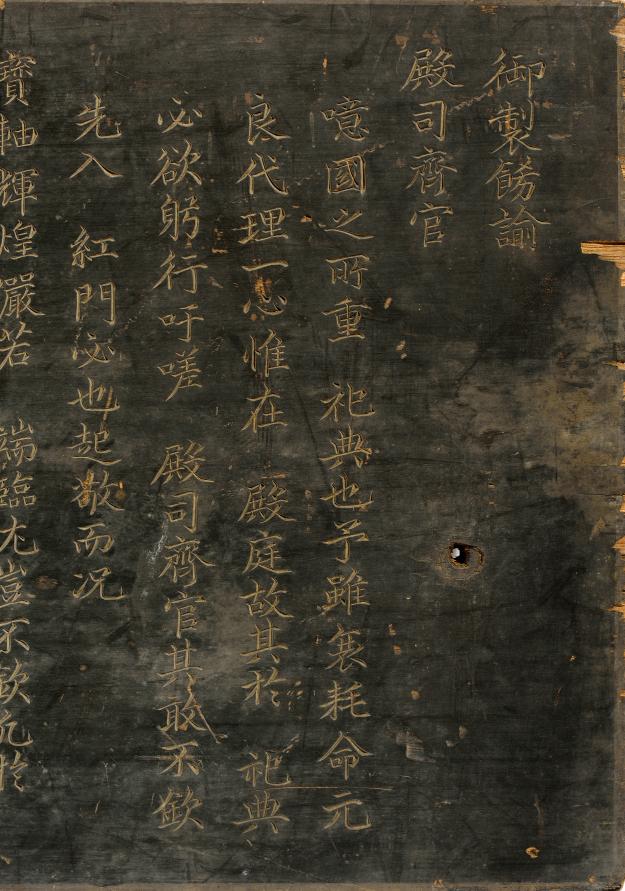 御製飭諭
殿司齋官
噫國之所重 祀典也予雖衰耗命元
良代理一心惟在 殿庭故其於 祀典
必欲躬行吁嗟 殿司齋官其敢不欽
先入 紅門必也起敬而况
寶軸輝煌嚴若 端臨尤豈不欽凡於